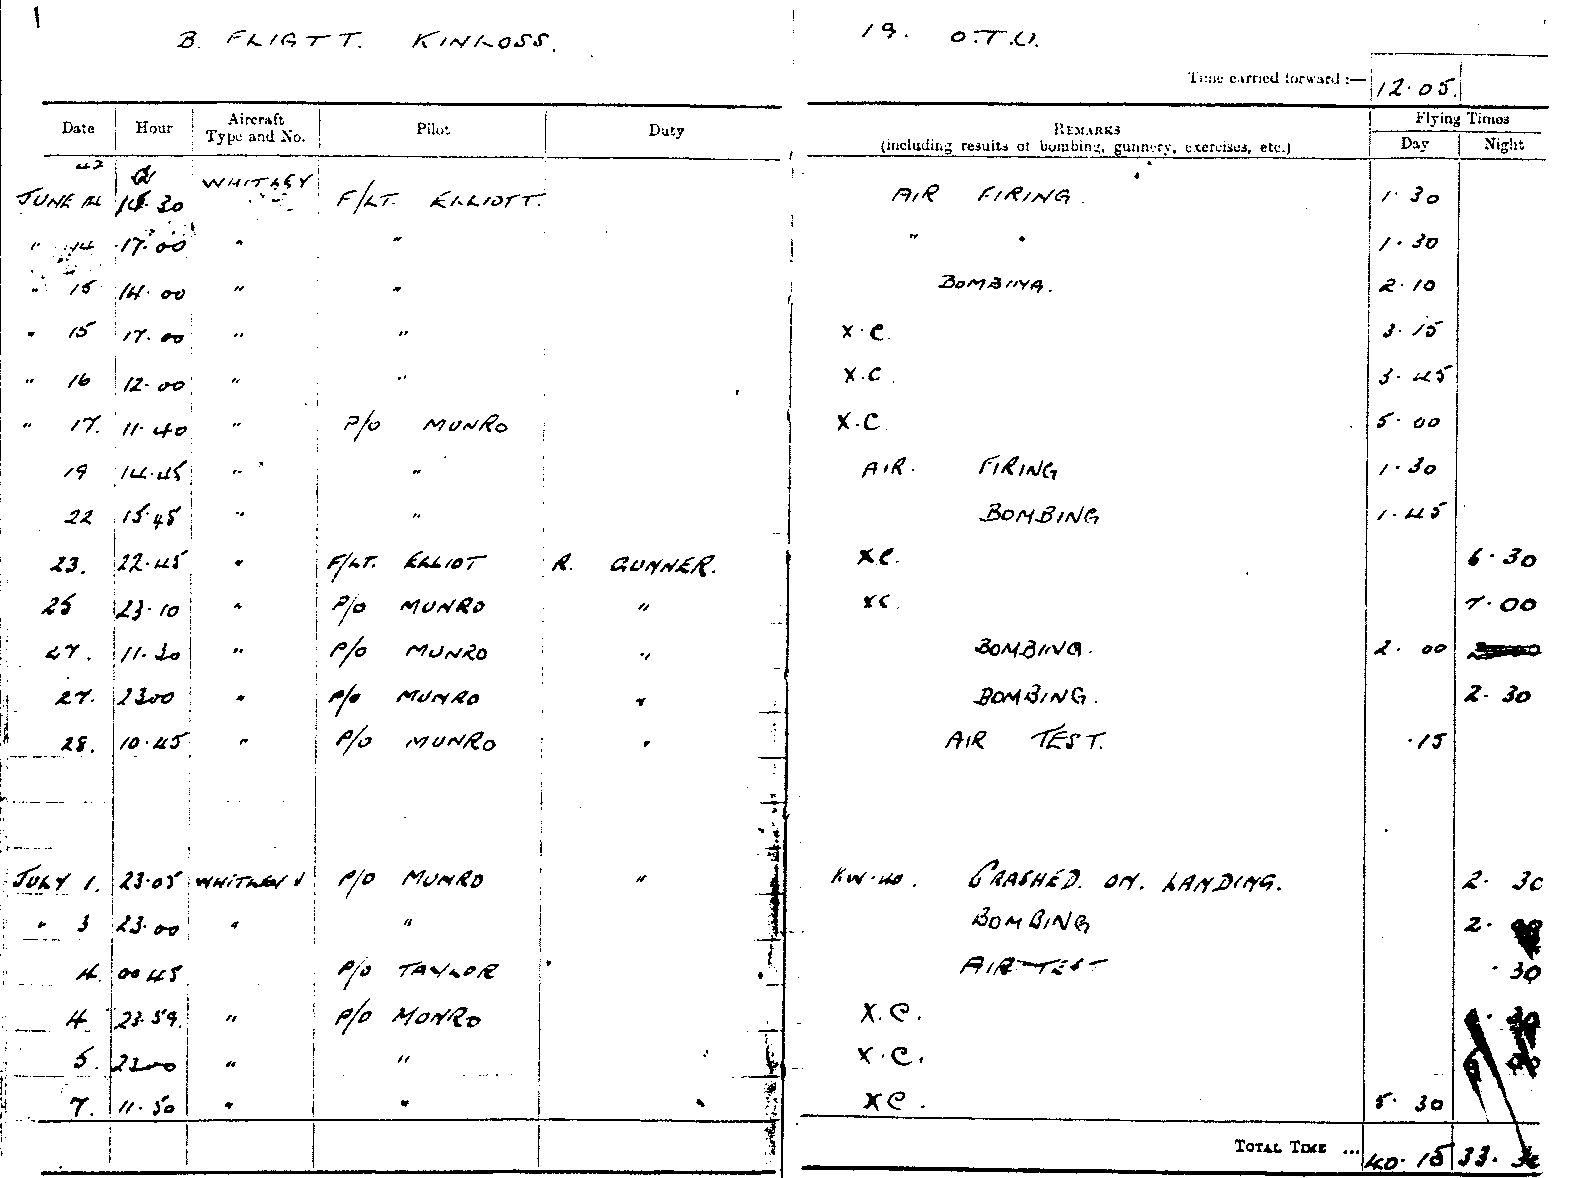 1
B. FLIGTT. KINLOSS. 19. O.T.U.
Time carried forward :— 12.05.
Date Hour Aircraft Type and No. Pilot Duty REMARKS (including results of bombing, gunnery, exercises, etc.) Flying Times Day Night
42
JUNE 30 WHITLEY F/LT. ELLIOTT. AIR FIRING. 1.30
" 14 17.00 " " " " 1.30
" 15 14.00 " " BOMBING. 2.10
" 15 17.00 " " X.C. 3.15
" 16 12.00 " " X.C. 3.45
" 17. 11.40 " P/O MUNRO X.C 5.00
19 14.45 " " AIR. FIRING 1.30
22 15.45 " " BOMBING 1.45
23. 22.45 " F/LT. ELLIOT R. GUNNER. XC. 6.30
25 23.10 " P/O MUNRO " XC. 7.00
27. 11.30 " P/O MUNRO " BOMBING. 2.00
27. 2300 " P/O MUNRO " BOMBING. 2.30
28. 10.45 " P/O MUNRO " AIR TEST. .15
JULY 1. 23.05 WHITLEY V P/O MUNRO " KW.40. CRASHED. ON. LANDING. 2.30
" 3 23.00 " " BOMBING 2.
4. 0045 P/O TAYLOR " AIR TEST .30
4. 23.59. " P/O MONRO X.C.
5. 2300 " " X.C.
7. 11.50 " " " XC. 5.30
TOTAL TIME ... 40.15 33.